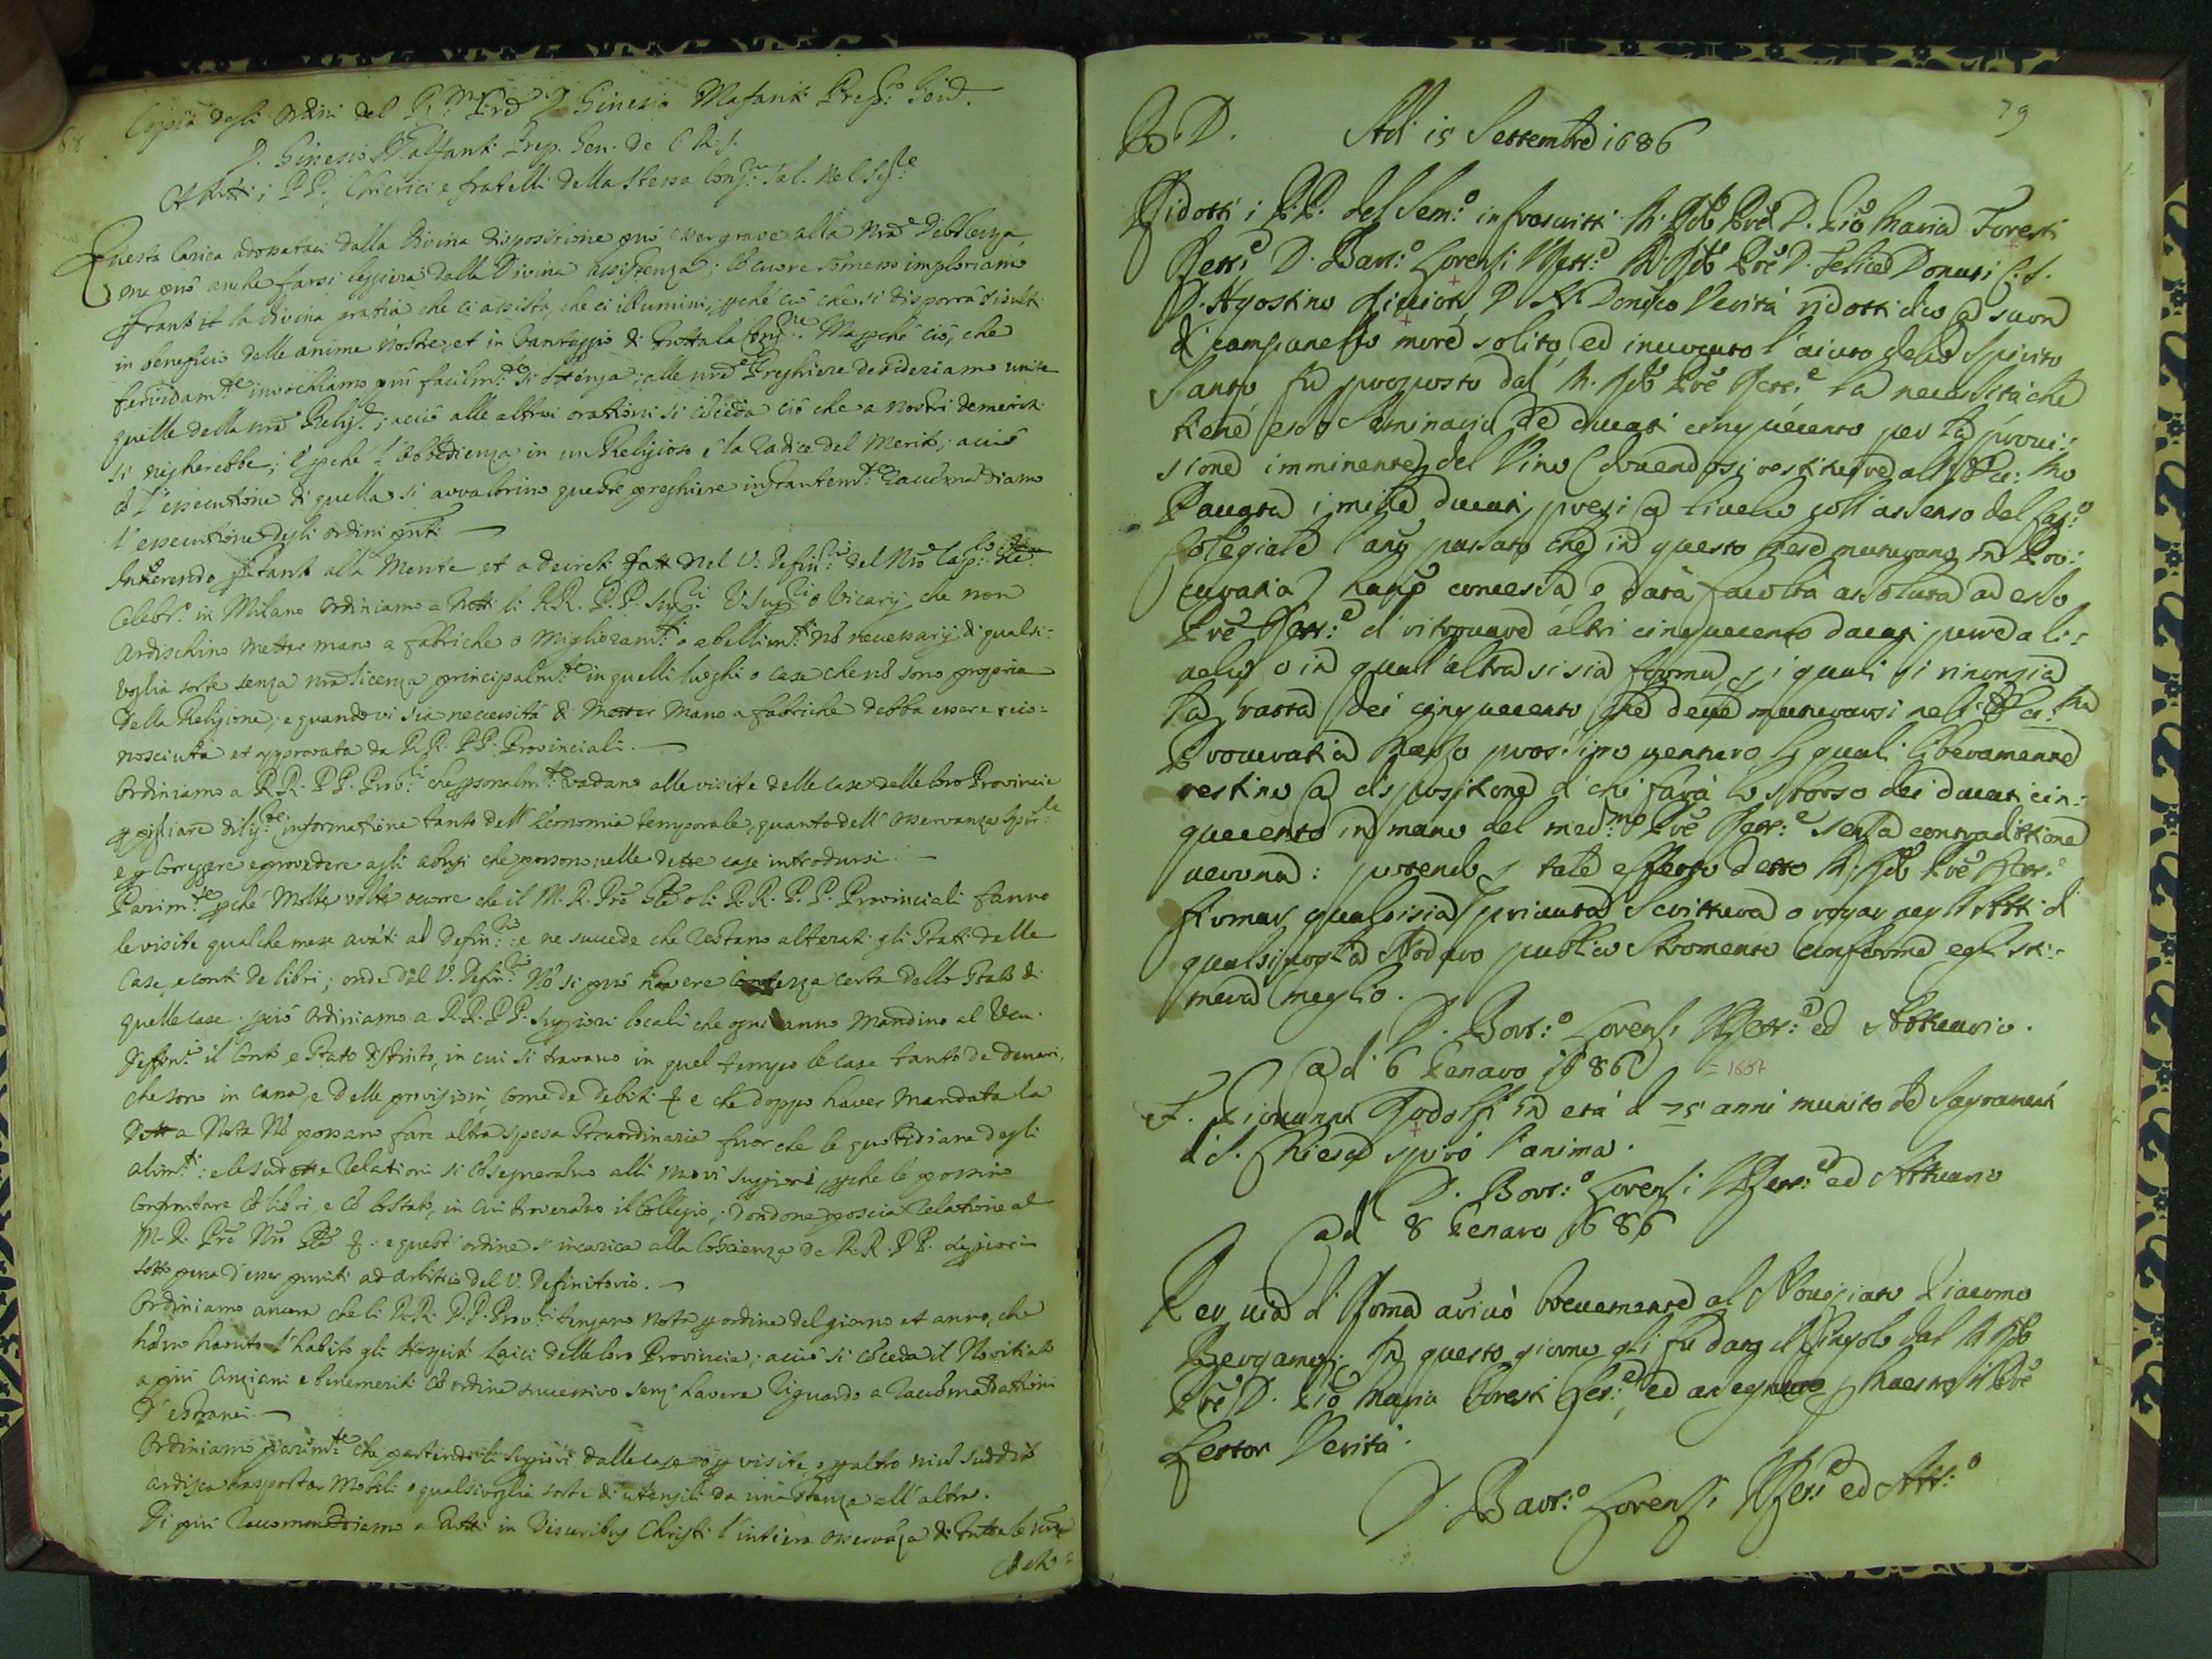 Copia degli Ordini del P. D. Ginesio Malfanti Prep. Gen.
D. Ginesio Malfanti Prep. Gen. de C. R. S.
A tutti i PP. Chierici e fratelli della stessa Cong.ne Sal. nel Sig.re
Questa Carica adossataci dalla divina dispositione può esser grave alla nra debolezza,
ma può anche farsi leggiera dalla Divina assistenza; cõ cuore somesso imploriamo
la divina gratia che ci assista, che ci illumini, ciò che si disporrà risulti
in beneficio delle anime nostre, et in vantaggio di tutta la Cong.ne Ma pche ciò, che
fervidam.te invochiamo più facilm.te si ottenga; alle nre Preghiere desideriamo unite
quelle della nra Relig.e; acciò alle altrui orationi si cõceda ciò che a nostri demeriti
si negherebbe; e pche l'obbedienza in un Religioso è la radice del merito; acciò
cõ l'essecutione di quella si avvalorino queste preghiere raccomãdiamo
l'essecutione degli ordini pnti
Inherendo ptanto alla mente et a decreti fatti nel V. Defin.rio del Nro Cap.lo
Celebr. in Milano ordiniamo a tutti li RR. PP. Sup.ri V.Sup.ri o Vicarij che non
ardischino metter mano a fabbriche o miglioram.ti o abellim.ti nõ necessarij di qualsi-
voglia sorte senza nra licenza principalm.te in quelli luoghi o case che nõ sono proprie
della Religione; e quando vi sia necessità di metter mano a fabbriche debba essere reco-
nosciuta et approvata da RR. PP. Provinciali.
Ordiniamo a RR. PP. Prov.li che psonalm.te vadano alle visite delle case delle loro Provincie
p pigliare dilig.te informatione tanto dell'Economia temporale, quanto dell'osservanza spir.le
e p correggere e provedere agli abusi che possono nelle dette case introdursi.
Parim.te pche molte volte occorre che il M. R. Pre Gñle o li RR. PP. Provinciali fanno
le visite qualche mese avãti al Defin.rio: e ne succede che restano alterati gli stati delle
case, e conti de libri; onde dal V. Defin.rio nõ si può havere contezza certa dello stato di
quelle case. pciò ordiniamo a RR. PP. Suppiori locali che ogni anno mandino al Ven.
Deffin.rio il conto e stato distinto, in cui si trovano in quel tempo le case tanto de denari,
che sono in cassa, e delle provisioni, come de debiti e che doppo haver mandata la
detta nota nõ possano fare altra spesa straordinaria fuor che le quotidiane degli
alim.ti: e le sudette relationi si cõsegneranno alli novi suppiori, pche le possino
confrontare cõ libri, e cõ lo stato, in cui troveranno il Collegio, dandone poscia relatione al
M. R. Pre Nro Gñle: e quest'ordine s'incarica alla coscienza de RR. PP. Suppiori
sotto pena d'esser puniti ad arbitrio del V. Definitorio.
Ordiniamo ancora che li RR. PP. Prov.li tengano nota p ordine del giorno et anno, che
hãno havuto l'habito gli Hospiti Laici delle loro Provincie; acciò si cõceda il Novitiato
a più anziani e benemeriti cõ ordine successivo senz'havere riguardo a raccõmãdationi
d'estranei.
Ordiniamo parim.te che partendosi li Suppiori dalle case o p visite, o p altro niun suddito
ardisca trasportar mobili o qualsivoglia sorte di utensili da una stanza all'altra.
Di più raccomandiamo a tutti in Visceribus Christi l'intiera osservãza di tutte le nre
79
B. D. Adi 15 Settembre 1686
Ridotti i PP. del Sem.o infrascritti M. Rdo Pre D. Gio Maria Foresti
Rett.e D. Bart.o Lorensi VRett.e M. Rdo Pre D. Felice Donati C. S.
D. Agostino D. Domco Verità ridotti dico a suon
di campanello more solito, ed invocato l'aiuto dello Spirito
Santo fu proposto dal M. Rdo Pre Rett.e la necessità che
tiene esso Seminario de ducati cinquecento per la provi-
sione imminente del Vino (dovendosi restituire all'
i mille ducati presi a livello coll'assenso del Cap.o
Colegiale l'ano passato che in questo mese maturano in Pro-
curatia) hano concessa e data facoltà assoluta ad esso
Pre Rett.e di ritrovare altri cinquecento ducati pure a li-
velo o in qual'altra si sia forma, i quali si rinonsia
la ratta dei cinquecento che deve maturarsi nell'
Procuratia Marzo prossimo venturo li quali liberamente
restino a dispositione di chi farà lo sborso dei ducati cin-
quecento in mano del med.mo Pre Rett.e senza contraditione
veruna: potendo p tale effetto detto M. Rdo Pre Rett.e
firmar qualsisia privata scrittura o rogar negli Atti di
qualsivoglia Nodaro publico stromento conforme egli sti-
merà meglio.
D. Bort.o Lorensi VRett.e ed Attuario.
adi 6 Genaro 1686 = 1687
F. Giovanni Rodolfi in età d 75 anni munito de Sagramenti
di S. Chiesa spirò l'anima.
D. Bort.o Lorensi VRett.e ed Attuario
adi 8 Genaro 1686
Per via di Roma arivò brevemente al Novisiato Giacomo
Bergamesi. In questo giorno gli fu dato il Cingolo dal M. Rdo
Pre D. Gio Maria Foresti Ret.e, ed asegnato p Maestro il Pre
Lettor Verità.
D. Bart.o Lorensi VRet.e ed Att.o